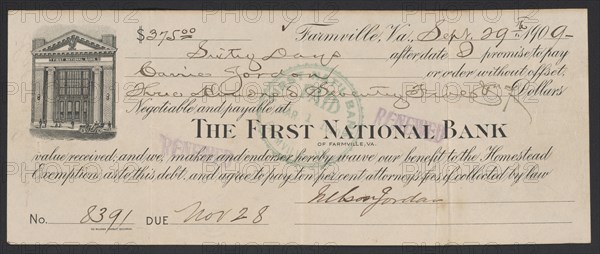 $375.00 Farmville, Va., Sept. 29th 1909-
Sixty Days after date I promise to pay
Carrie Jordan or order without offset,
Three Hundred & Seventy Five Dollars
Negotiable and payable at
THE FIRST NATIONAL BANK
OF FARMVILLE, VA.
value received; and we, maker and endorser hereby waive our benefit to the Homestead
Exemption as to this debt, and agree to pay ten per cent attorney's fees if collected by law
No. 8391 DUE Nov 28
Jordan
FIRST NATIONAL BANK
PAID
RENEWED
RENEWED